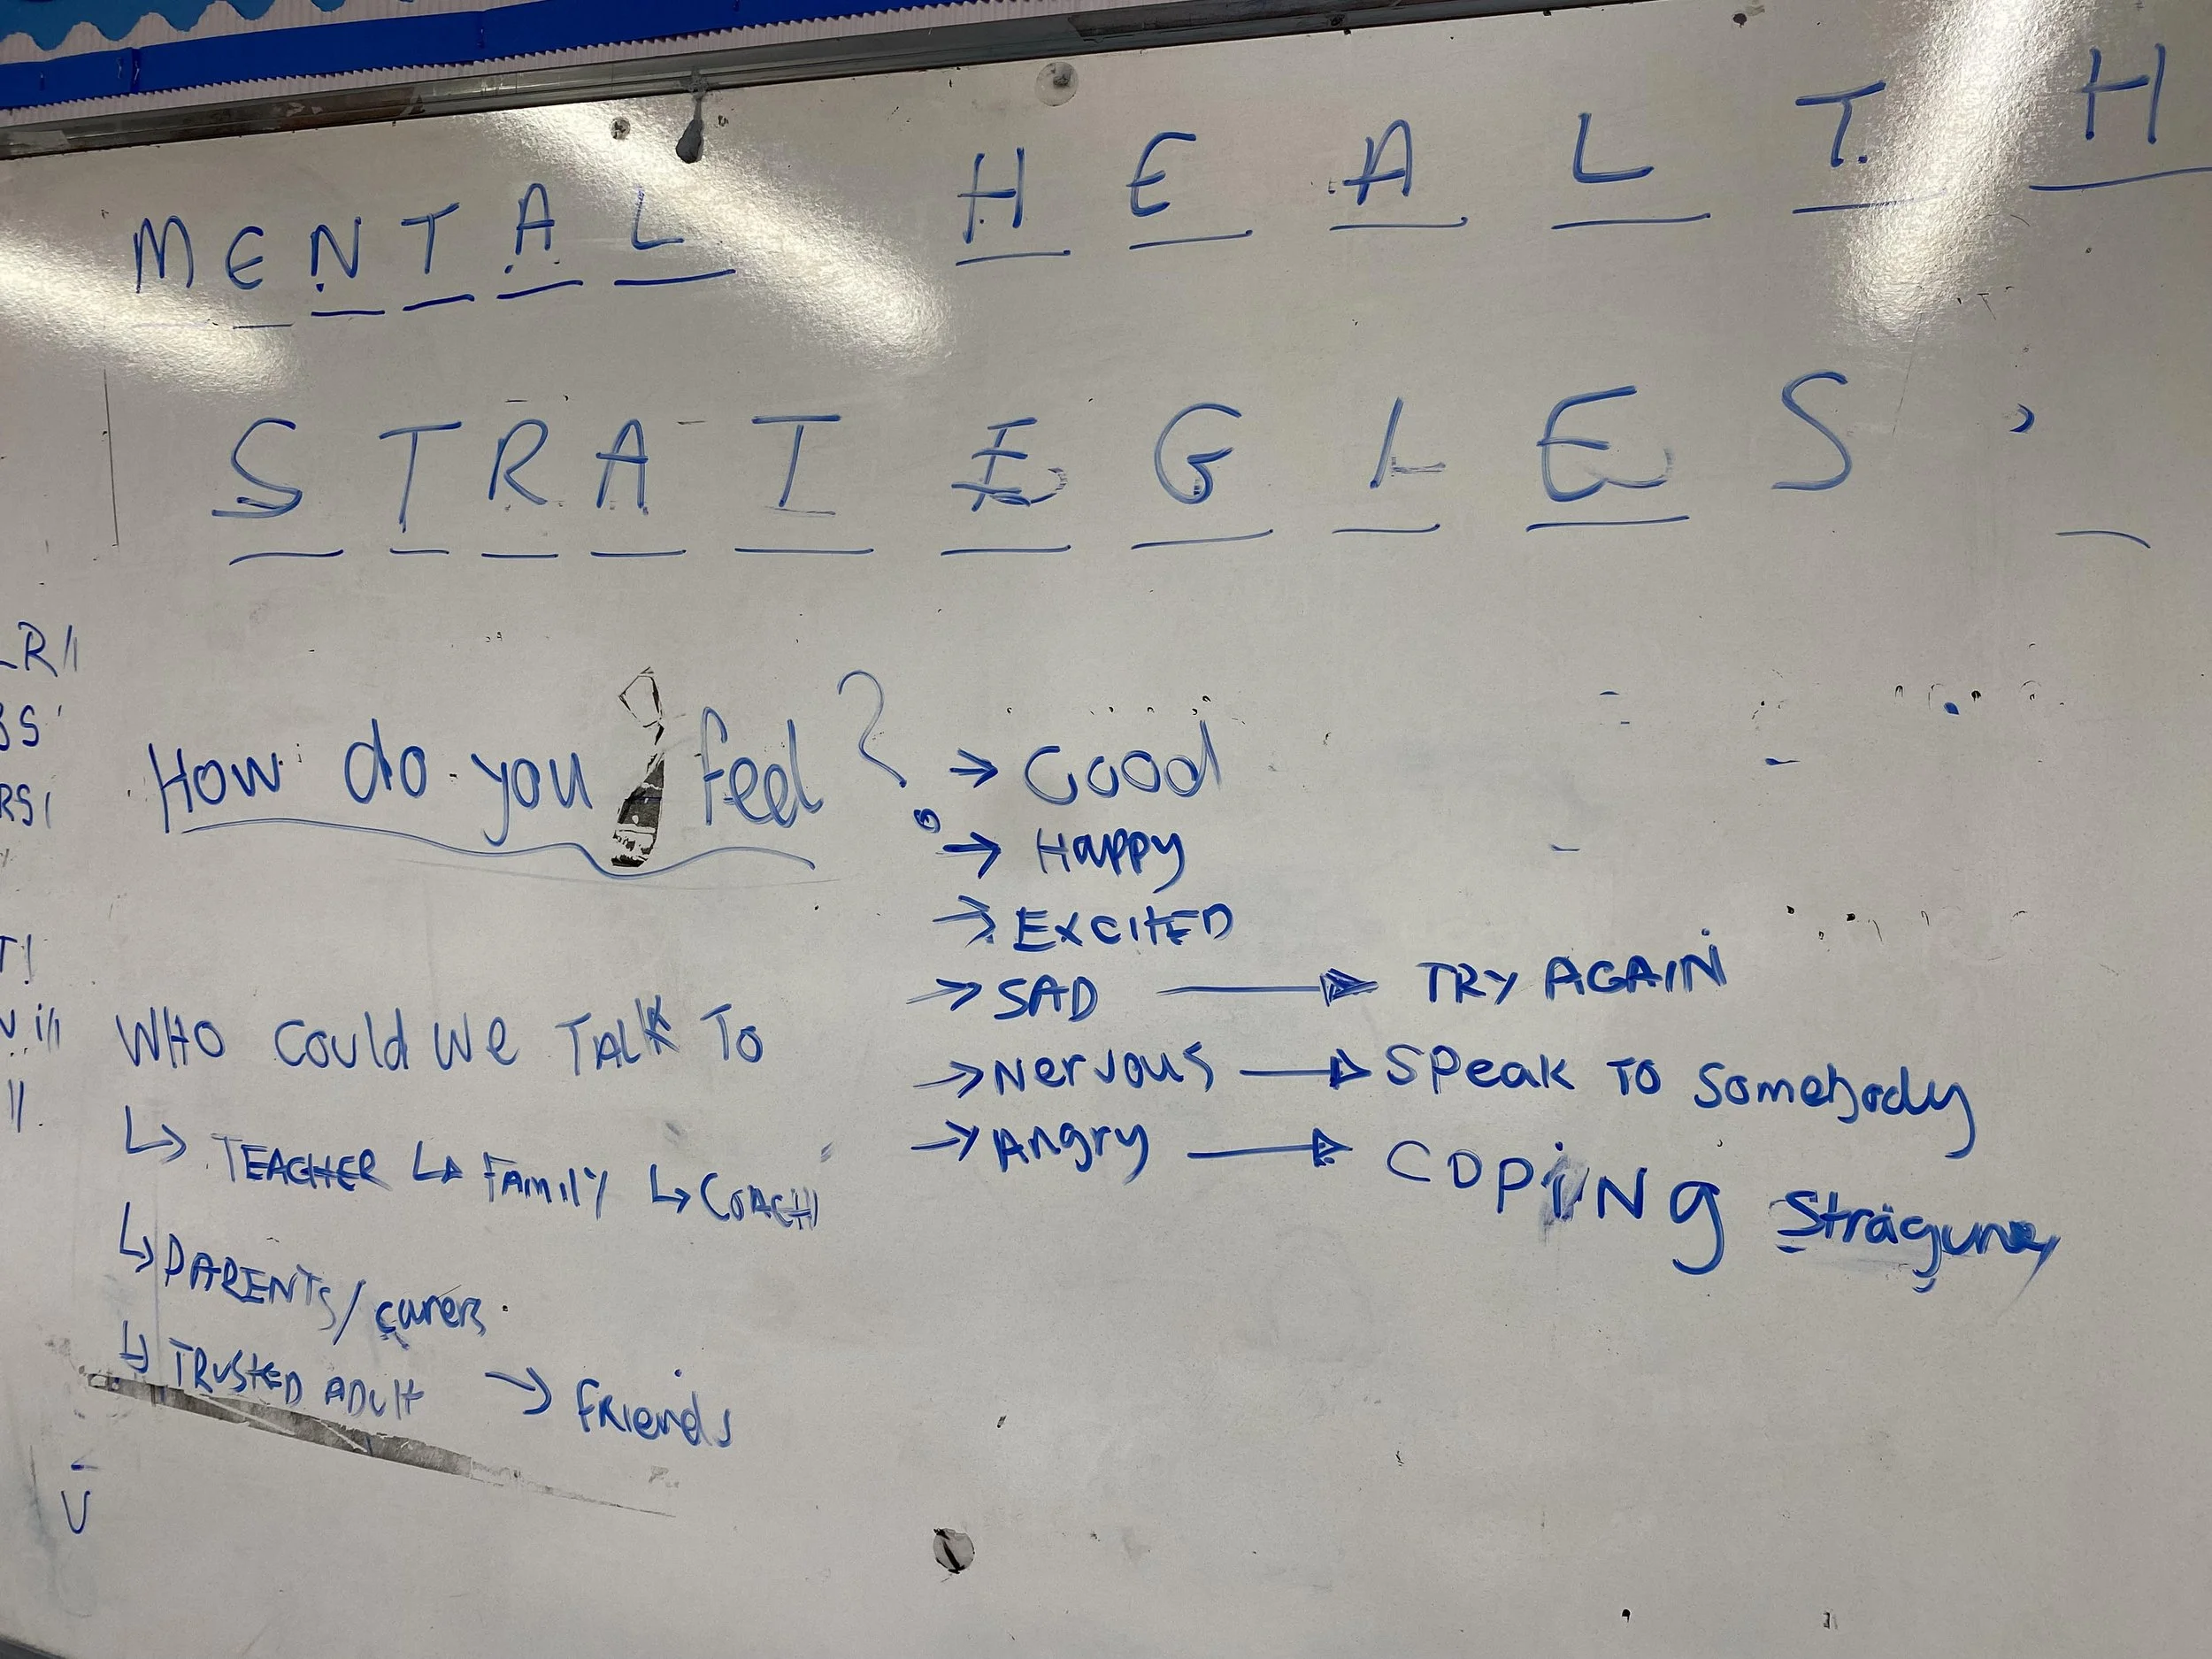 MENTAL HEALTH
STRATEGIES
How do you feel?
→ Good
→ Happy
→ EXCITED
→ SAD → TRY AGAIN
→ Nervous → SPeak TO Somebody
→ Angry → COPiNg
WHO could we TALK To
↳ TEACHER ↳ FAMILY ↳ COACH
↳ PARENTS/carers
↳ TRUSTED ADULT → FRiends